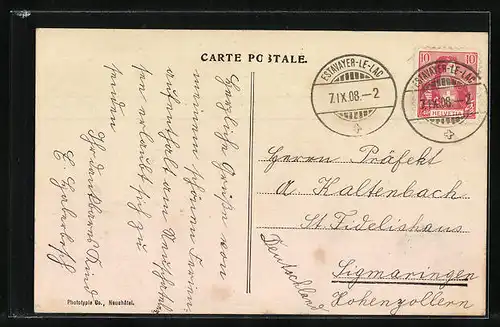 CARTE POSTALE.
ESTAVAYER-LE-LAC
7.IX.08.–2
ESTAVAYER-LE-LAC
7.IX.08.–2
10 10
HELVETIA
Herzliche Grüße von
meinem schönen Ferien-
aufenthalt am Neuchatel-
see erlaubt sich zu
senden
Ihr dankbares Kind
E.
Herrn Präfekt
A Kaltenbach
St. Fidelishaus
Sigmaringen
Hohenzollern
Deutschland
Phototypie Co., Neuchâtel.